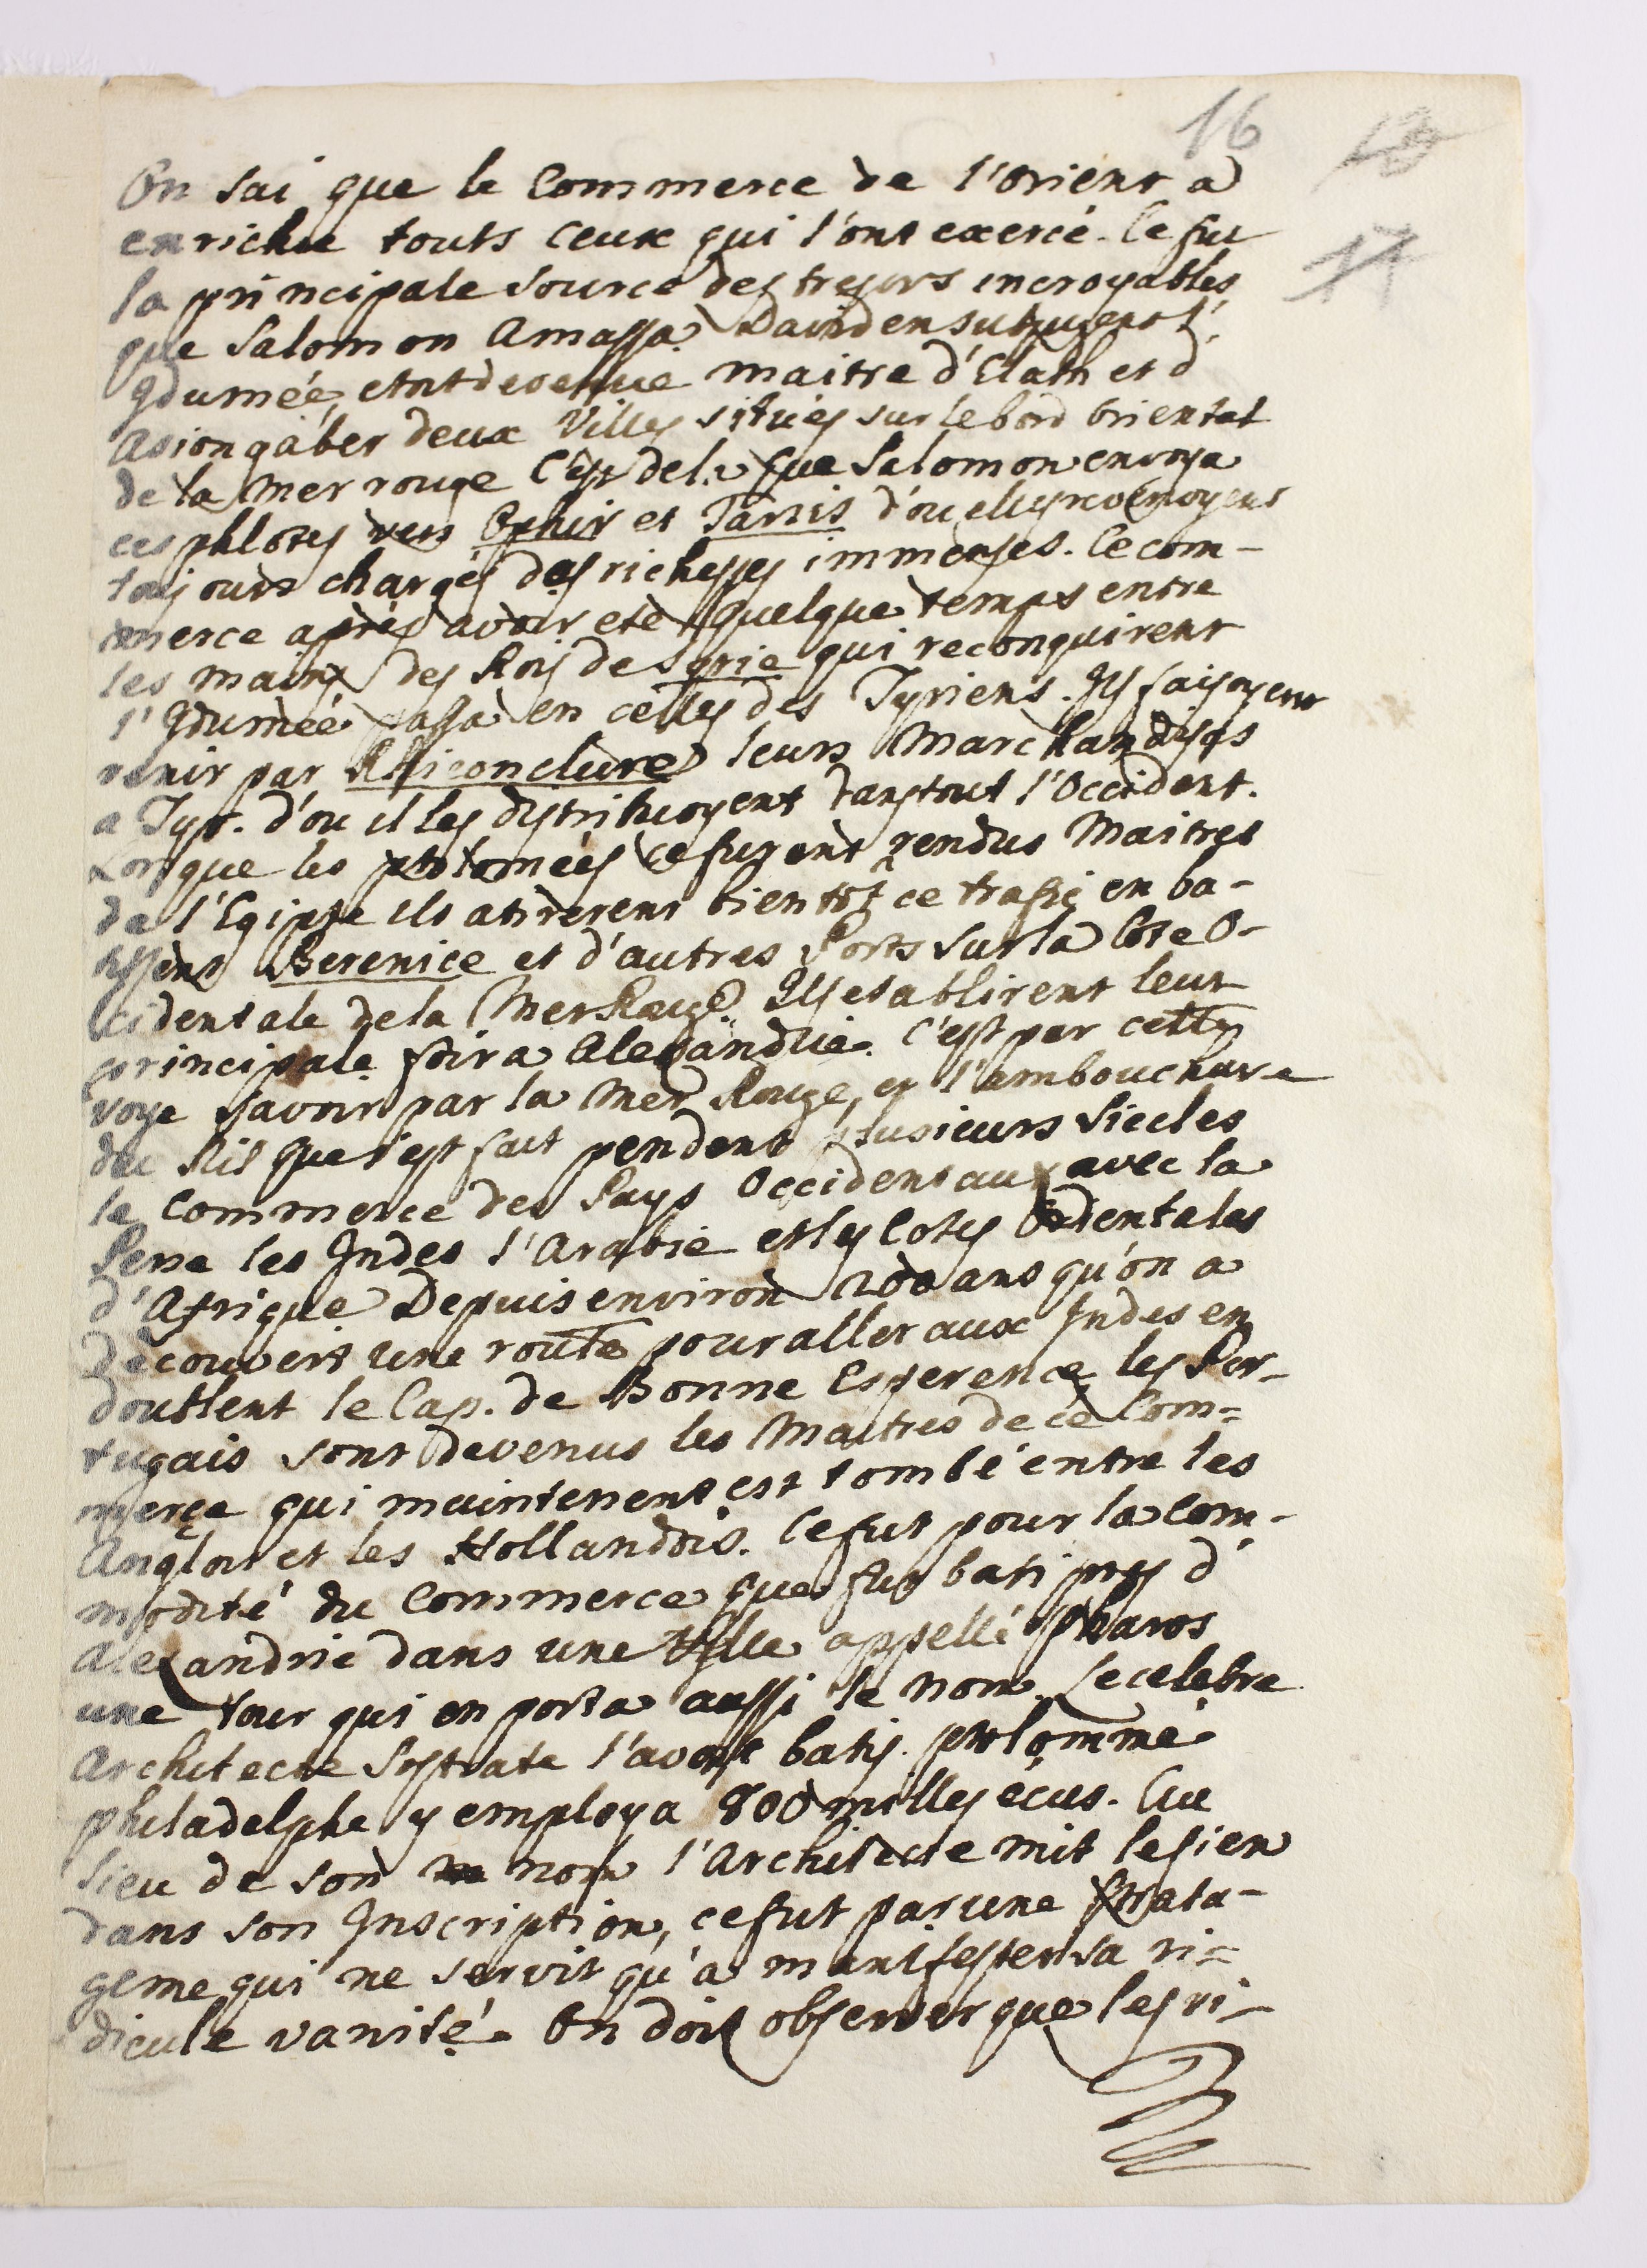 16
On sai que le Commerce de l'Orient a
enrichie touts ceux qui l'ont exercé. Ce fut
17
la principale source des tresors incroyables
que Salomon amassa. David en subjugent l'
Idumée, etant devenue maitre d'Elath et d'
Asiongaber deux Villes situés sur le bord Oriental
de la Mer rouge C'est de la que Salomon envoya
ces phlotes vers Ophir et Tarsis d'ou elles revenoyent
toujours chargés des richesses immenses. Ce com-
merce après avoir eté quelque temps entre
les mains des Rois de Syrie qui reconquirent
l'Idumée passa en celles des Tyriens. Ils faisoyent
venir par Rhiconclure leurs Marchandises
a Tyr. d'ou il les distribuoyent dans tout l'Occident.
Lorsque les ptolomées ce furent rendus Maitres
de l'Egipte ils atirerent bientot ce trafic en ba-
tissent Berenice et d'autres Ports sur la Cote O-
ccidentale de la Mer Rouge. Ils etablirent leur
principale foir a Alexandrie. C'est par cette
voye savoir par la Mer Rouge, et l'embouchure
du Nil que s'est fait pendent plusieurs Siecles
le Commerce des Pays Occidentaux avec la
Perse les Indes l'Arabie et les Cotes Orientales
d'Afrique Depuis environ 200 ans qu'on a
Découvert une route pour aller aux Indes en
doublent le Cap. de Bonne Esperence les Por-
tugais sont devenus les Maitres de ce Com=
merce qui maintenent est tombé entre les
Anglois et les Hollandois. Ce fut pour la com-
modité du Commerce que fut bati pres d'
Alexandrie dans une Isle appellé Pharos
une tour qui en porta aussi le nom. Le celebre
Architecte Sostrate l'avoit batis. ptolommé
philadelphe y employa 800 milles écus. Au
lieu de son nom l'Architecte mit le sien
dans son Inscription, ce fut par une strata-
geme qui ne servit qu'a manifester sa ri=
dicule vanité. On doit observer que les ri-